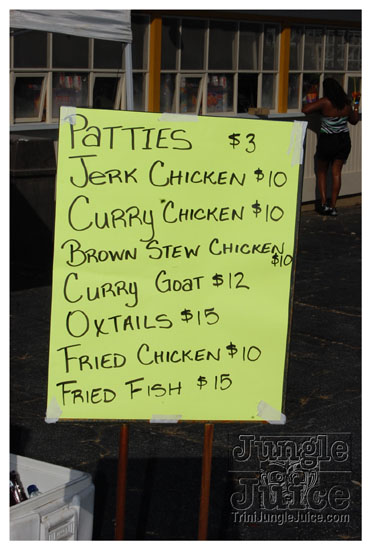 PATTIES $3
JERK CHICKEN $10
CURRY CHICKEN $10
BROWN STEW CHICKEN
$10
CURRY GOAT $12
OXTAILS $15
FRIED CHICKEN $10
FRIED FISH $15
JUNGLE
JUICE
TRINIJUNGLEJUICE.COM